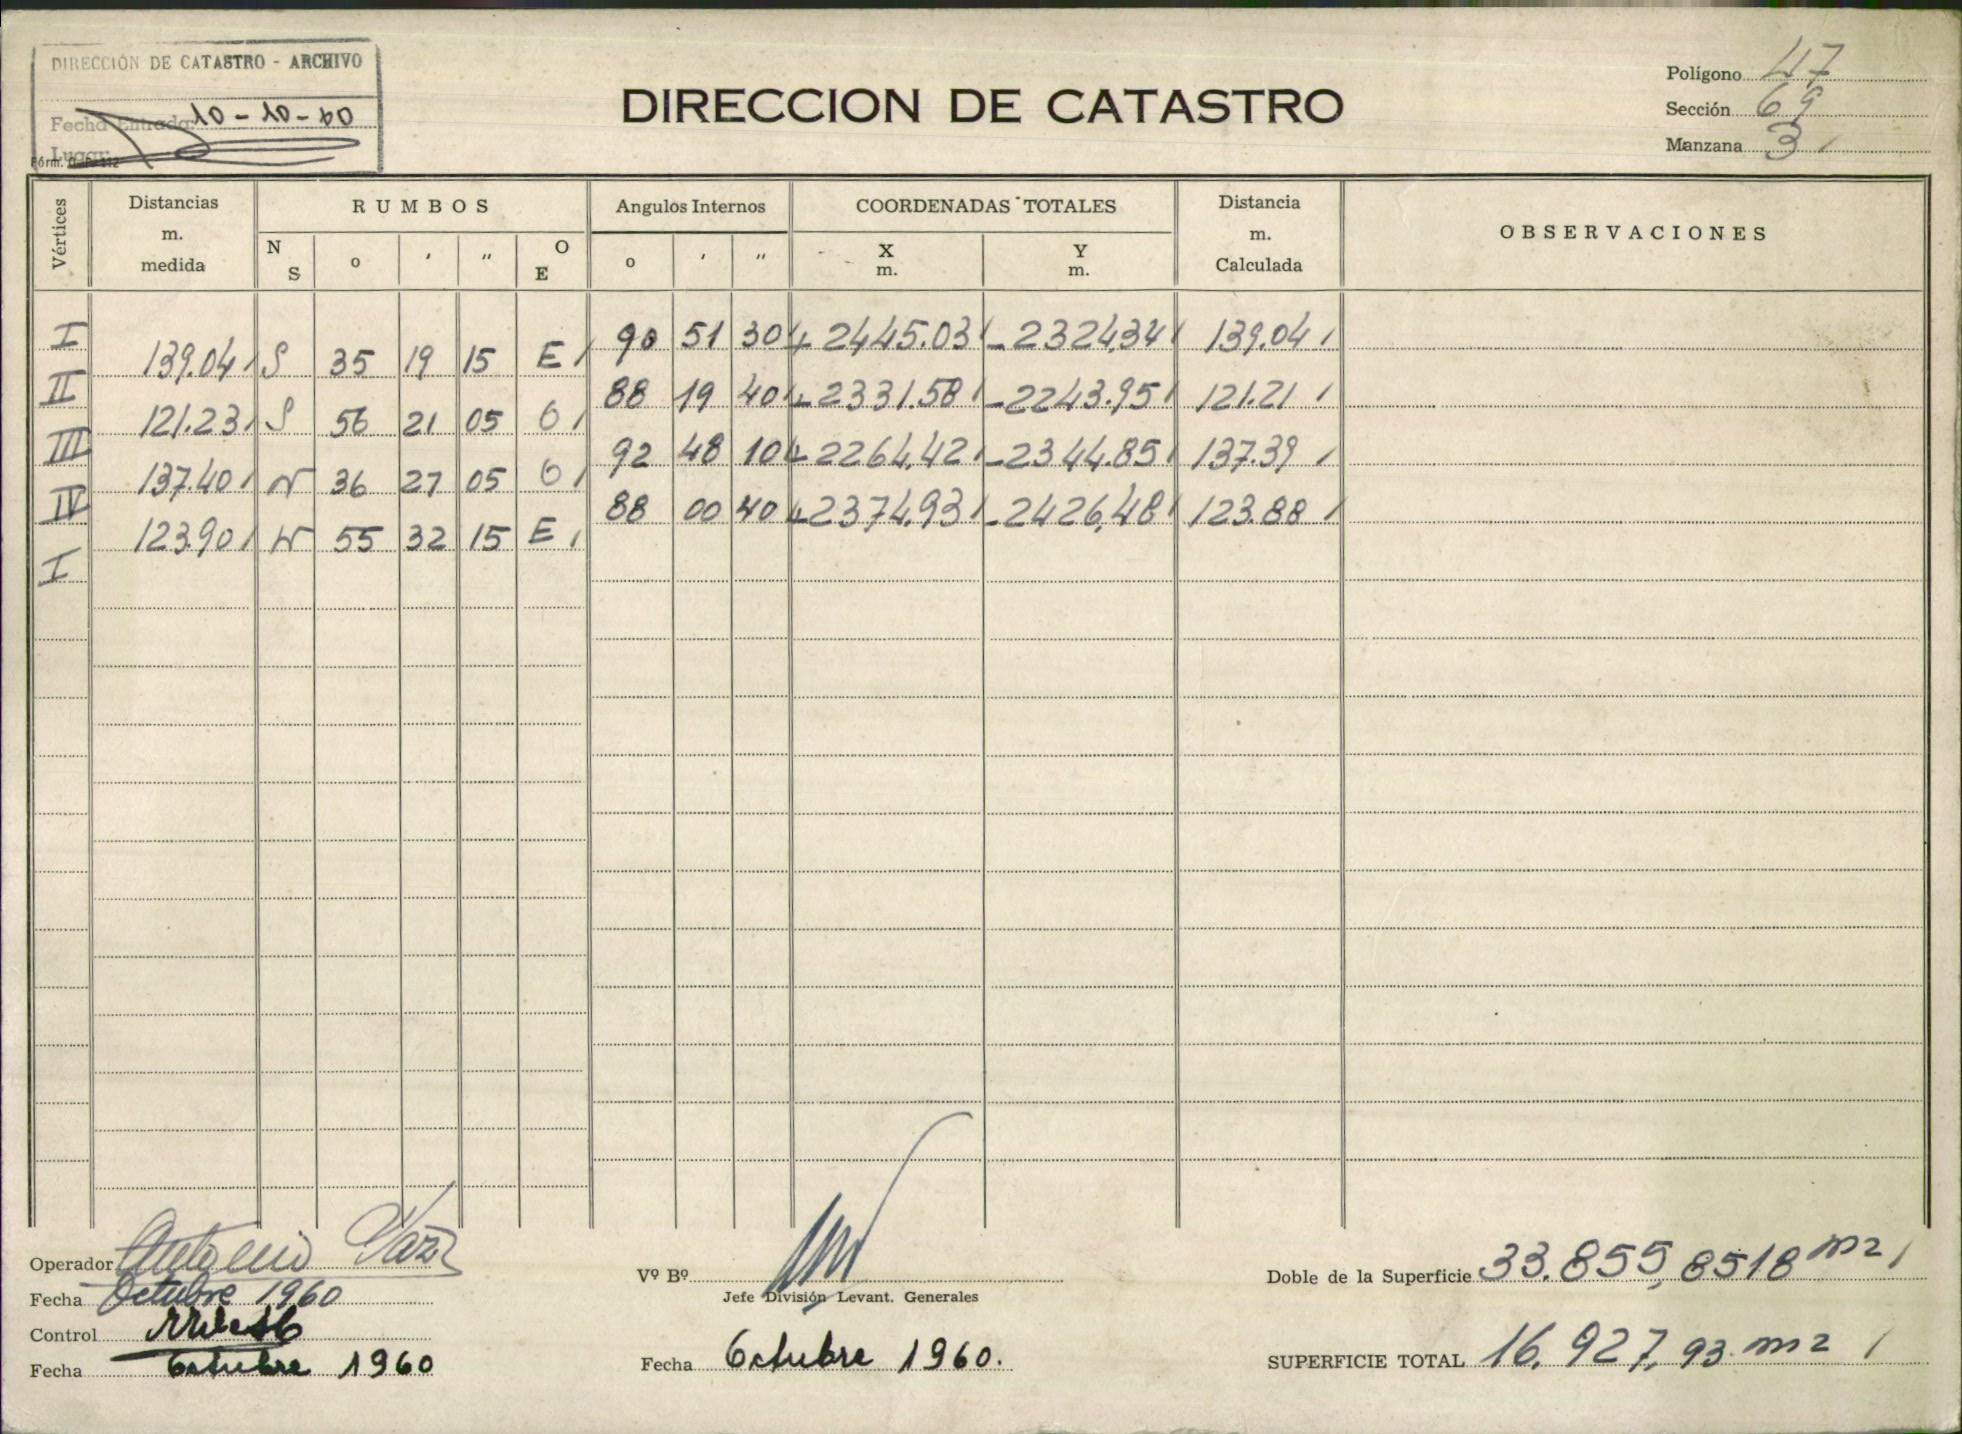 DIRECCIÓN DE CATASTRO - ARCHIVO
Fecha Entrada: 10-10-60
Lugar:
DIRECCION DE CATASTRO
Polígono 47
Sección 69
Manzana 3
Vértices Distancias m. medida RUMBOS Angulos Internos COORDENADAS TOTALES Distancia m. Calculada OBSERVACIONES
N S o ' " O E o ' " X m. Y m.
I 90 51 30 + 2445.03 - 2324,34 139.04
139.04 S 35 19 15 E
II 88 19 40 + 2331.58 - 2243.95 121.21
121.23 S 56 21 05 O
III 92 48 10 + 2264,42 - 2344.85 137.39
137.40 N 36 27 05 O
IV 88 00 40 + 2374,93 - 2426,48 123.88
123.90 N 55 32 15 E
I
Operador Antonio
Fecha Octubre 1960
Control
Fecha Octubre 1960
Vº Bº
Jefe División Levant. Generales
Fecha Octubre 1960.
Doble de la Superficie 33.855,8518 m2
SUPERFICIE TOTAL 16.927,93 m2